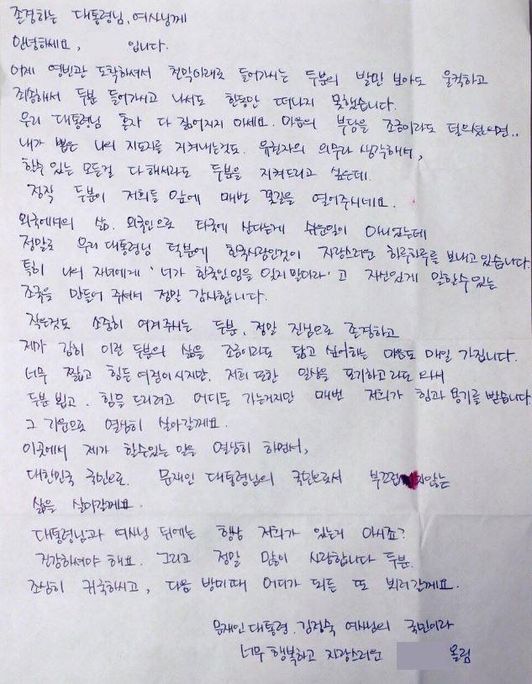 존경하는 대통령님, 여사님께
안녕하세요, 입니다.
어제 영빈관 도착하셔서 천막아래로 들어가시는 두분의 발만 보아도 울컥하고
죄송해서 두분 들어가시고 나서도 한동안 떠나지 못했습니다.
우리 대통령님 혼자 다 짊어지지 마세요. 마음의 부담을 조금이라도 덜으셨으면..
내가 뽑은 나의 지도자를 지켜내는것도 유권자의 의무라 생각해서,
할수 있는 모든걸 다 해서라도 두분을 지켜드리고 싶은데.
정작 두분이 저희들 앞에 매번 꽃길을 열어주시네요.
외국에서의 삶. 외국인으로 타국에 산다는게 쉬운일이 아니었는데
정말로 우리 대통령님 덕분에 한국사람인것이 자랑스러운 하루하루를 보내고 있습니다.
특히 나의 자녀에게 '너가 한국인임을 잊지말아라' 고 자신있게 말할수있는
조국을 만들어 주셔서 정말 감사합니다.
작은것도 소중히 여겨주시는 두분, 정말 진심으로 존경하고
제가 감히 이런 두분의 삶을 조금이라도 닮고 싶어하는 마음도 매일 가집니다.
너무 짧고 힘든 여정이시지만, 저희 또한 일상을 포기하고라도 와서
두분 뵙고. 힘을 드리려고 어디든 가는거지만 매번 저희가 힘과 용기를 받습니다
그 기운으로 열심히 살아갈게요.
이곳에서 제가 할수있는 일을 열심히 하면서,
대한민국 국민으로. 문재인 대통령님의 국민으로서 부끄럽지않는
삶을 살아갈게요.
대통령님과 여사님 뒤에는 항상 저희가 있는거 아시죠?
건강하셔야 해요. 그리고 정말 많이 사랑합니다 두분.
조심히 귀국하시고, 다음 방미때 어디가 되든 또 뵈러갈게요.
문재인대통령. 김정숙 여사님의 국민이라
너무 행복하고 자랑스러운 올림